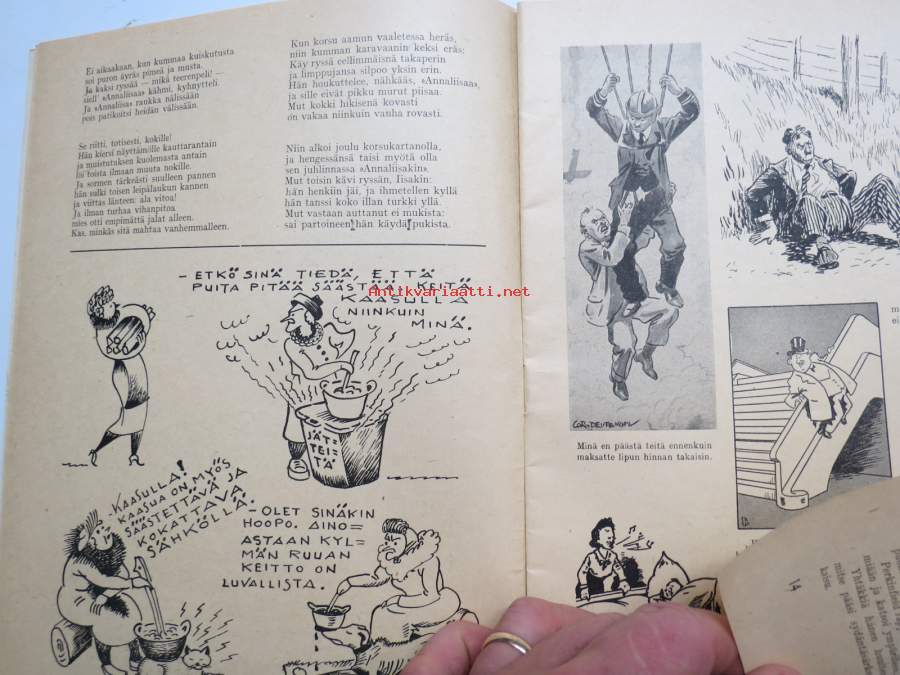 Ei aikaakaan, kun kummaa kuiskutusta
soi puron äyräs pimeä ja musta.
Ja kaksi ryssää — mikä teerenpeli! —
siell' «Annaliisaa» kähmi, kyhnytteli
Ja «Annaliisa» raukka nälissään
pois patikoitsi heidän välissään.
Se riitti, totisesti, kokille!
Hän kiersi näyttämölle kauttarantain
ja muistutuksen kuolemasta antain
iti toista ilmaan muuta nokille.
Ja sormen tärkeästi suulleen pannen
hän sulki toisen leipilaukun kannen
ja viittas länteen: ala vitoa!
Ja ilman turhaa vihanpitoa
mies otti empimättä jalat alleen.
Kas, minkäs sitä mahtaa vanhemmalleen.
Kun korsu aamun vaaletessa heräs,
niin kumman karavaanin keksi eräs:
Käy ryssä eellimmäisnä takaperin
ja limppujansa silpoo yksin erin.
Hän houkuttelee, nähkääs, «Annaliisaa»,
ja sille eivät pikku murut piisaa.
Mut kokki hikisenä kovasti
on vakaa niinkuin vanha rovasti.
Niin alkoi joulu korsukartanolla,
ja hengessänsä taisi myötä olla
sen juhlinnassa «Annaliisakin».
Mut toisin kävi ryssän, Iisakin:
hän henkiin jäi, ja ihmetellen kyllä
hän tanssi koko illan turkki yllä.
Mut vastaan auttanut ei mukista:
sai partoineen hän käydä pukista.
— ETKÖ SINÄ TIEDÄ, ETTÄ
PUITA PITÄÄ SÄÄSTÄÄ. KEITÄ
KAASULLA
NIINKUIN
MINÄ.
Antikvariaatti.net
JÄT-
TEI-
TÄ
— KAASULLA!
KAASUA ON MYÖS
SÄÄSTETTÄVÄ JA
KOKATTAVA
SÄHKÖLLÄ.
— OLET SINÄKIN
HOOPO. AINO-
ASTAAN KYL-
MÄN RUUAN
KEITTO ON
LUVALLISTA.
Minä en päästä teitä ennenkuin
maksatte lipun hinnan takaisin.
m
ei
14
Perkinford
miään ja katsoi
Yhtäkkiä hänen
mitse pääsi
kaisu.